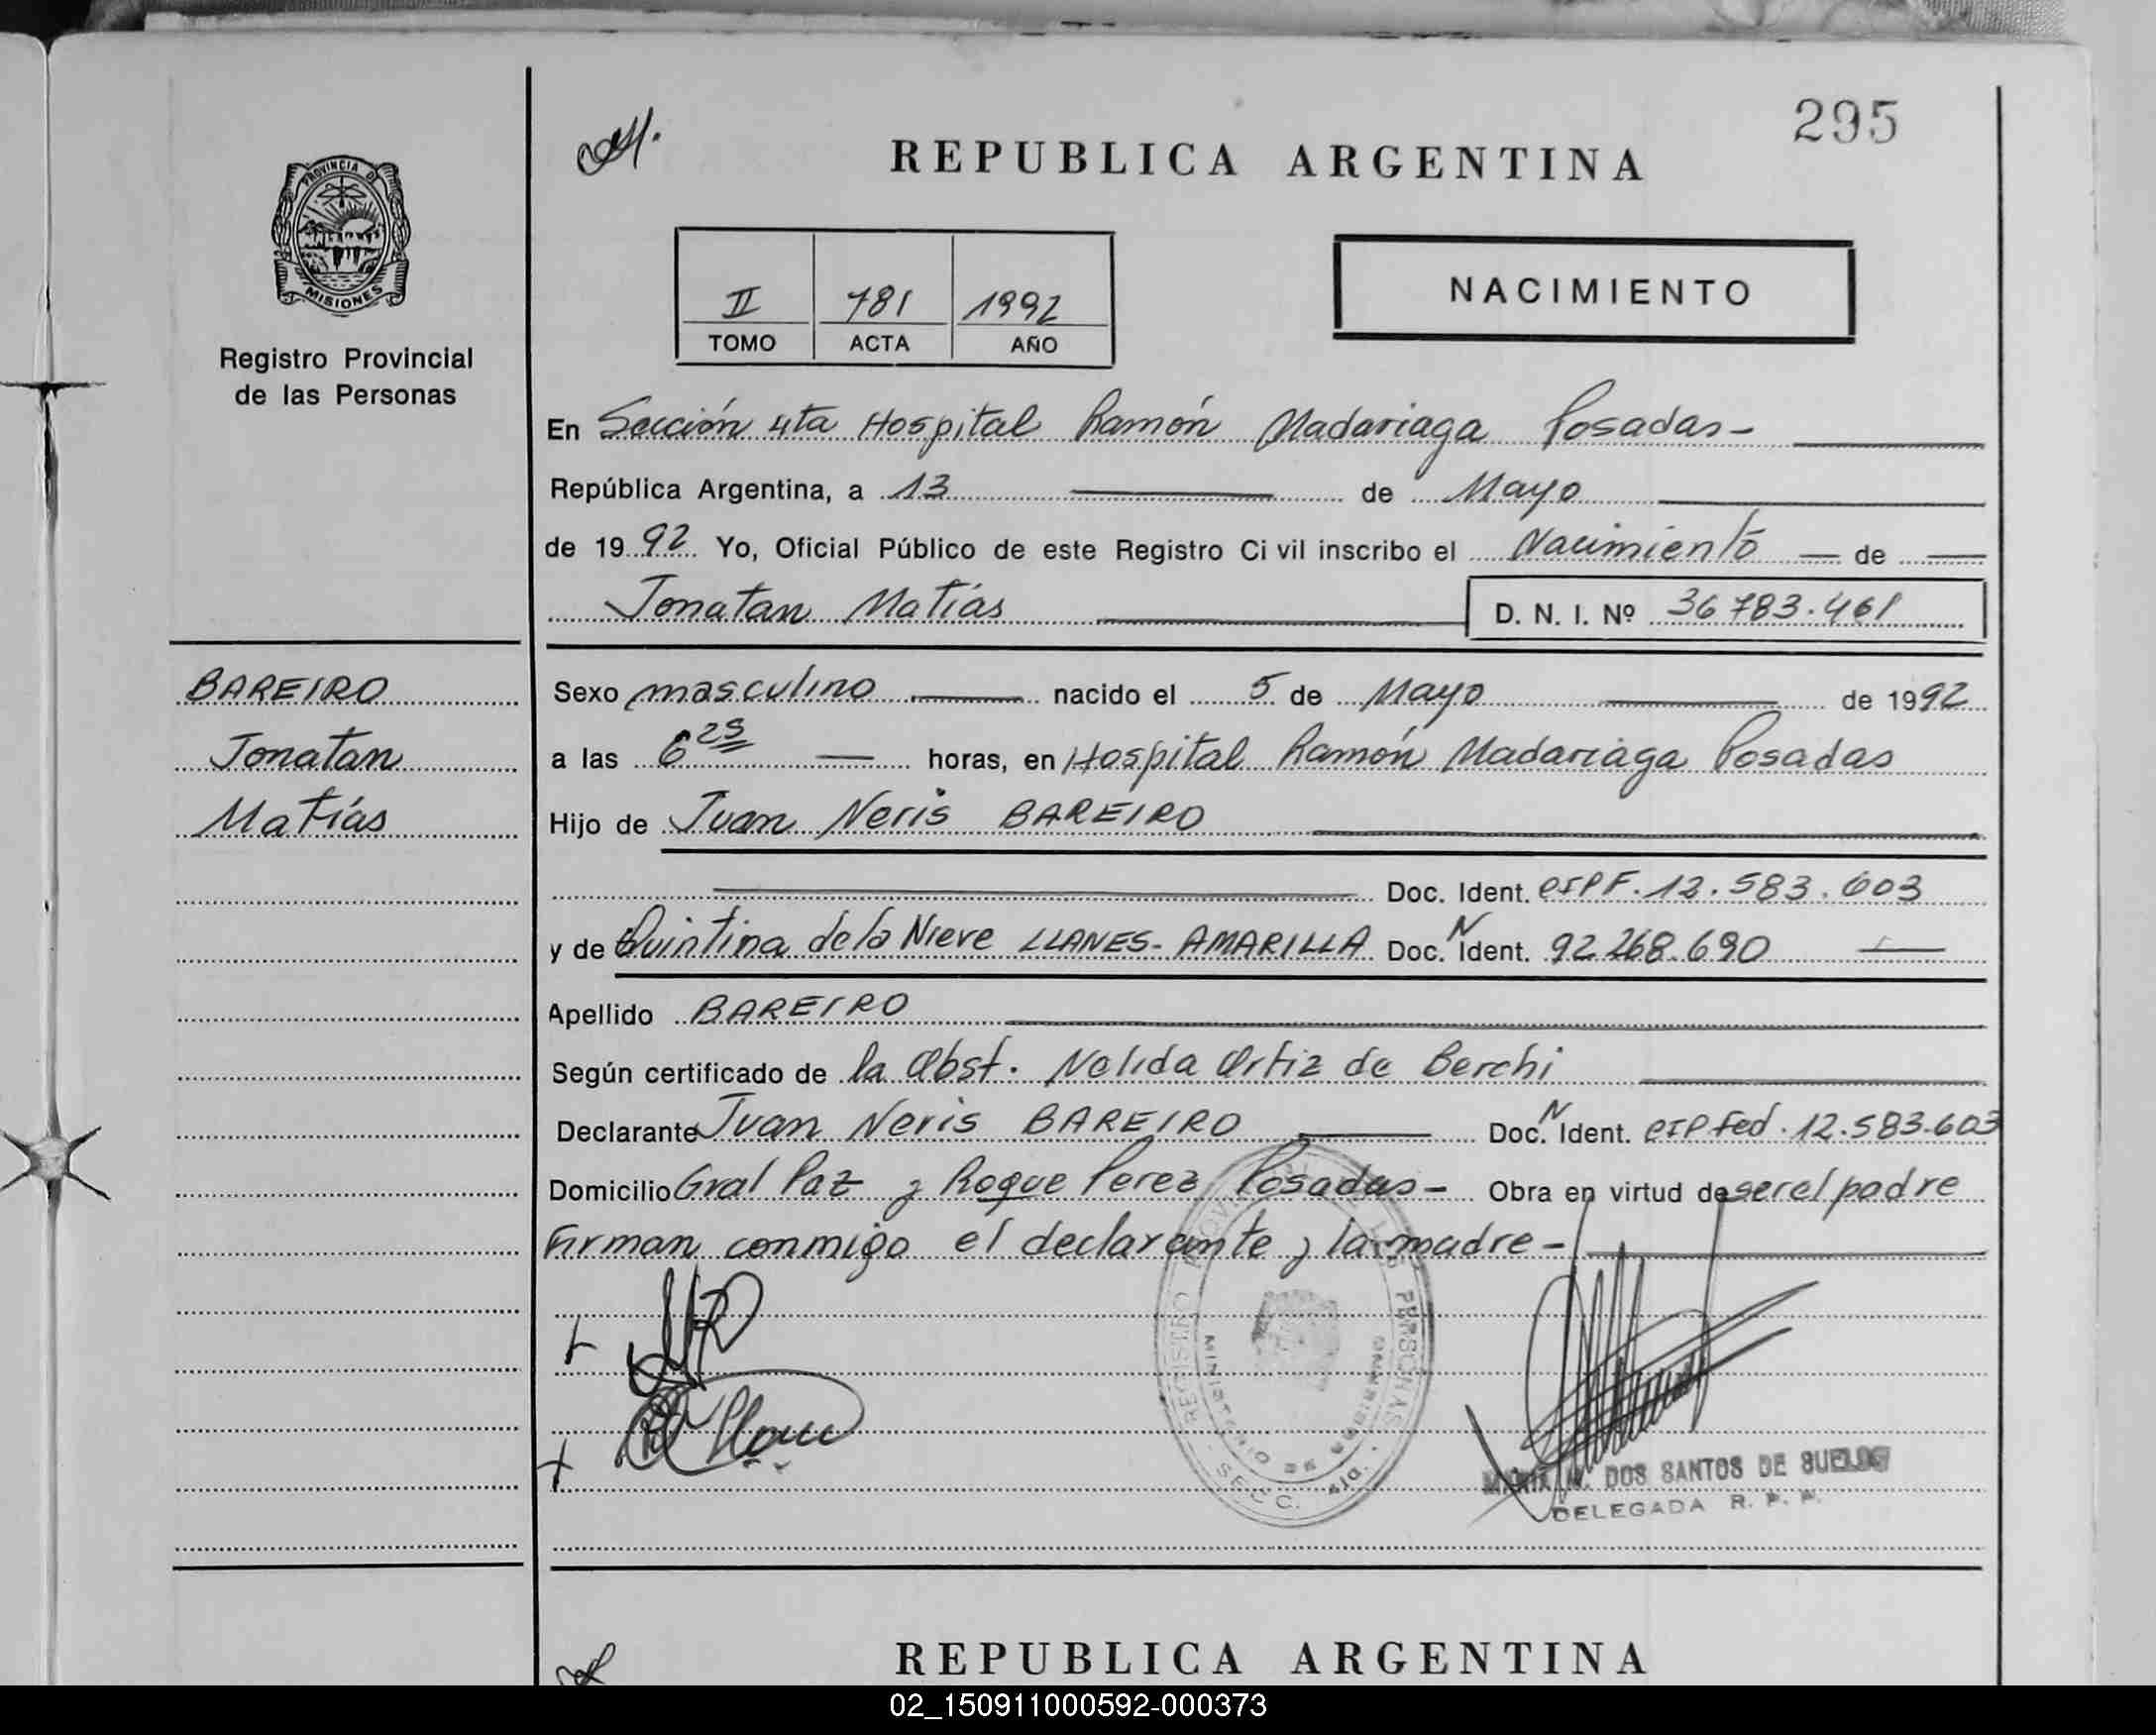 295
REPUBLICA ARGENTINA
PROVINCIA DE
MISIONES
Registro Provincial
de las Personas
II 781 1992
TOMO ACTA AÑO
NACIMIENTO
En Sección 4ta Hospital Ramón Madariaga Posadas-
República Argentina, a 13 de Mayo
de 1992 Yo, Oficial Público de este Registro Ci vil inscribo el Nacimiento de
Jonatan Matías D. N. I. Nº 36783.461
BAREIRO
Jonatan
Matías
Sexo masculino nacido el 5 de Mayo de 1992
a las 6 25 horas, en Hospital Ramón Madariaga Posadas
Hijo de Juan Neris BAREIRO
Doc. Ident. CIPF. 12.583.603
y de Quintina de la Nieve LLANES-AMARILLA Doc. N Ident. 92.268.690
Apellido BAREIRO
Según certificado de la Obst. Nelida Ortiz de Berchi
Declarante Juan Neris BAREIRO Doc. N Ident. CIP Fed. 12.583.603
Domicilio Gral Paz y Roque Perez Posadas- Obra en virtud de ser el padre
Firman conmigo el declarante y la madre-
REGISTRO PROVINCIAL DE LAS PERSONAS
MINISTERIO DE GOBIERNO
SECC. 4ta.
DOS SANTOS DE SUELOS
DELEGADA R. P. P.
REPUBLICA ARGENTINA
02_150911000592-000373